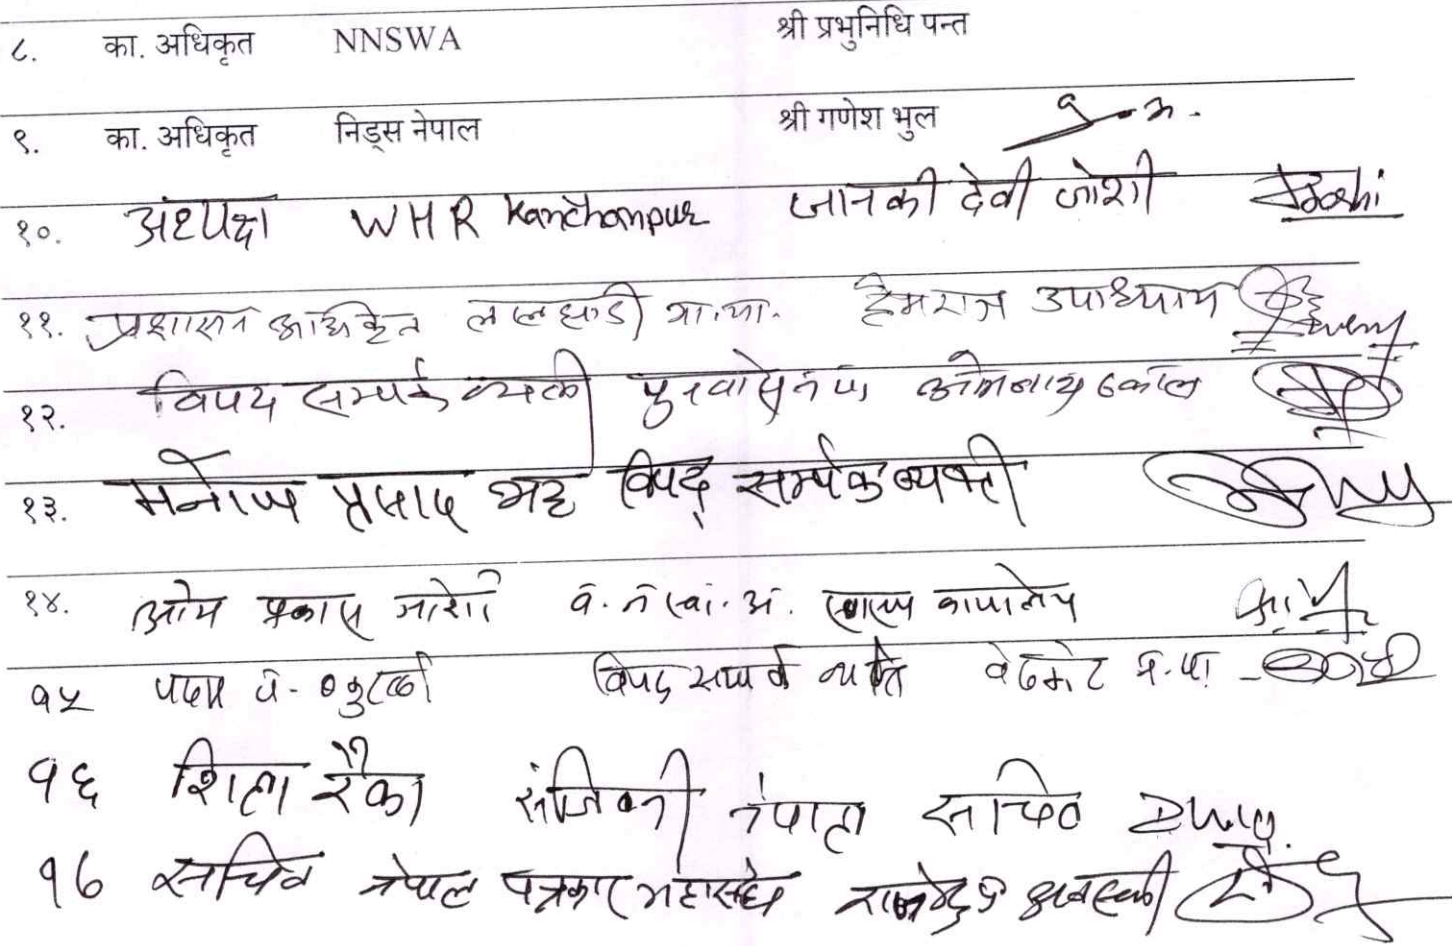 ८. का. अधिकृत NNSWA श्री प्रभुनिधि पन्त
९. का. अधिकृत निड्स नेपाल श्री गणेश भुल
१०. अध्यक्ष WHR Kanchanpur जानकी देवी जोशी Joshi
११. प्रशासन अधिकृत लालझाडी गा.पा. हेमराज उपाध्याय
१२. विपद सम्पर्क व्यक्ती पुनर्वास न.पा.
१३. मनोज प्रसाद भट्ट विपद् सर्म्पक व्यक्ती
१४. ओम प्रकाश जोशी स्वास्थ्य कार्यालय
१५ विपद सम्पर्क व्यक्ति वेदकोट न.पा.
१६ शिला रैका संजिवनी नेपाल सचिव
१७ सचिव नेपाल पत्रकार महासंघ राजेन्द्र अवस्थी